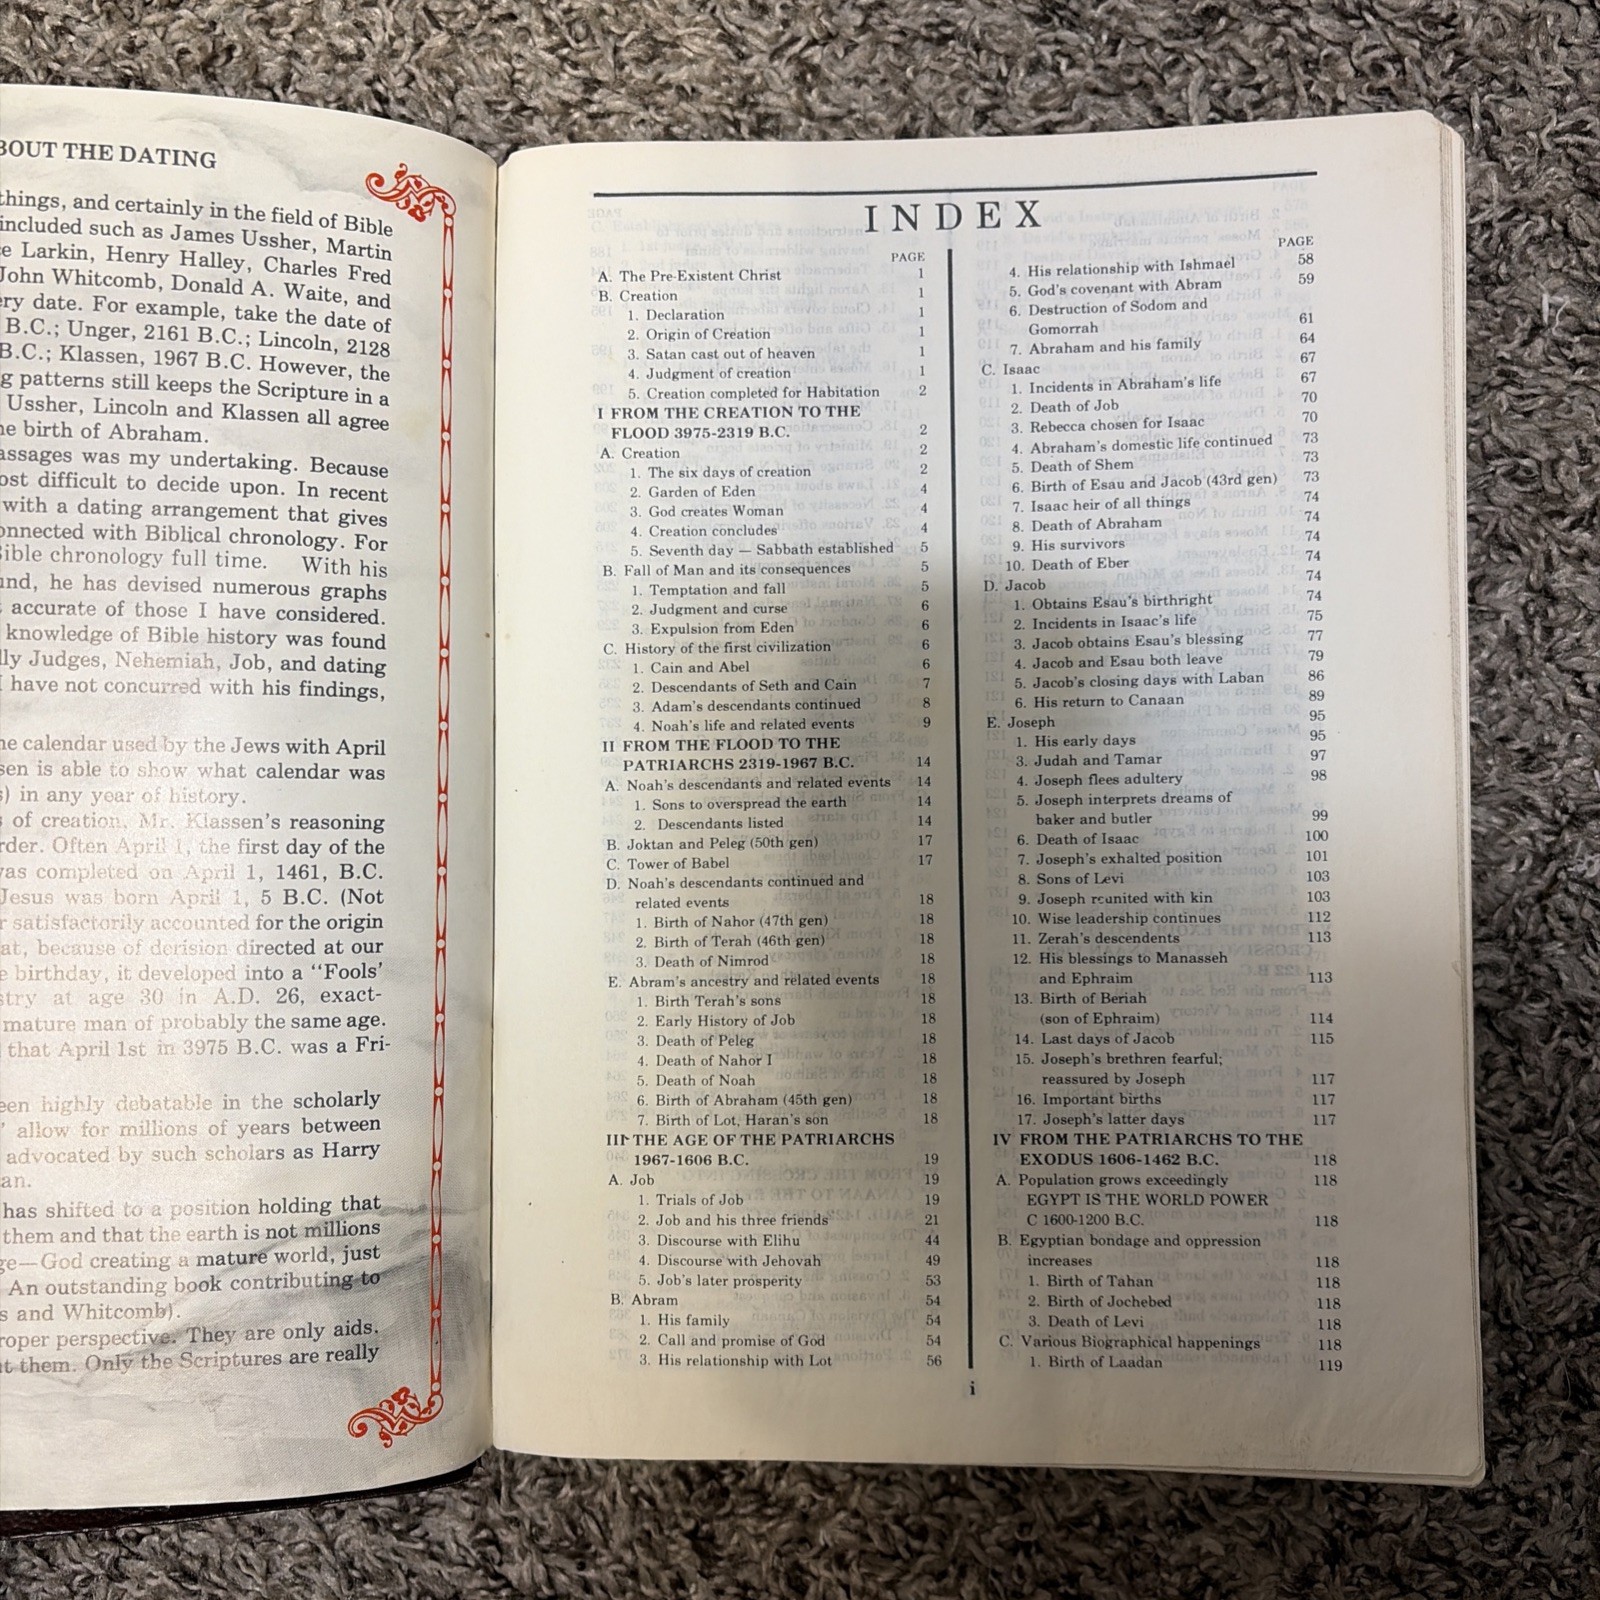 BOUT THE DATING
things, and certainly in the field of Bible
included such as James Ussher, Martin
e Larkin, Henry Halley, Charles Fred
John Whitcomb, Donald A. Waite, and
ery date. For example, take the date of
B.C.; Unger, 2161 B.C.; Lincoln, 2128
B.C.; Klassen, 1967 B.C. However, the
g patterns still keeps the Scripture in a
Ussher, Lincoln and Klassen all agree
he birth of Abraham.
assages was my undertaking. Because
ost difficult to decide upon. In recent
with a dating arrangement that gives
onnected with Biblical chronology. For
Bible chronology full time. With his
und, he has devised numerous graphs
accurate of those I have considered.
knowledge of Bible history was found
lly Judges, Nehemiah, Job, and dating
I have not concurred with his findings,
he calendar used by the Jews with April
sen is able to show what calendar was
s) in any year of history.
of creation, Mr. Klassen's reasoning
rder. Often April 1, the first day of the
was completed on April 1, 1461, B.C.
Jesus was born April 1, 5 B.C. (Not
r satisfactorily accounted for the origin
at, because of derision directed at our
e birthday, it developed into a "Fools'
stry at age 30 in A.D. 26, exact-
mature man of probably the same age.
that April 1st in 3975 B.C. was a Fri-
een highly debatable in the scholarly
' allow for millions of years between
advocated by such scholars as Harry
an.
has shifted to a position holding that
them and that the earth is not millions
ge—God creating a mature world, just
An outstanding book contributing to
s and Whitcomb).
roper perspective. They are only aids.
t them. Only the Scriptures are really
INDEX
PAGE
A. The Pre-Existent Christ 1
B. Creation 1
1. Declaration 1
2. Origin of Creation 1
3. Satan cast out of heaven 1
4. Judgment of creation 1
5. Creation completed for Habitation 2
I FROM THE CREATION TO THE
FLOOD 3975-2319 B.C. 2
A. Creation 2
1. The six days of creation 2
2. Garden of Eden 4
3. God creates Woman 4
4. Creation concludes 4
5. Seventh day — Sabbath established 5
B. Fall of Man and its consequences 5
1. Temptation and fall 5
2. Judgment and curse 6
3. Expulsion from Eden 6
C. History of the first civilization 6
1. Cain and Abel 6
2. Descendants of Seth and Cain 7
3. Adam's descendants continued 8
4. Noah's life and related events 9
II FROM THE FLOOD TO THE
PATRIARCHS 2319-1967 B.C. 14
A. Noah's descendants and related events 14
1. Sons to overspread the earth 14
2. Descendants listed 14
B. Joktan and Peleg (50th gen) 17
C. Tower of Babel 17
D. Noah's descendants continued and
related events 18
1. Birth of Nahor (47th gen) 18
2. Birth of Terah (46th gen) 18
3. Death of Nimrod 18
E. Abram's ancestry and related events 18
1. Birth Terah's sons 18
2. Early History of Job 18
3. Death of Peleg 18
4. Death of Nahor I 18
5. Death of Noah 18
6. Birth of Abraham (45th gen) 18
7. Birth of Lot, Haran's son 18
III THE AGE OF THE PATRIARCHS
1967-1606 B.C. 19
A. Job 19
1. Trials of Job 19
2. Job and his three friends 21
3. Discourse with Elihu 44
4. Discourse with Jehovah 49
5. Job's later prosperity 53
B. Abram 54
1. His family 54
2. Call and promise of God 54
3. His relationship with Lot 56
PAGE
4. His relationship with Ishmael 58
5. God's covenant with Abram 59
6. Destruction of Sodom and
Gomorrah 61
7. Abraham and his family 64
C. Isaac 67
1. Incidents in Abraham's life 67
2. Death of Job 70
3. Rebecca chosen for Isaac 70
4. Abraham's domestic life continued 73
5. Death of Shem 73
6. Birth of Esau and Jacob (43rd gen) 73
7. Isaac heir of all things 74
8. Death of Abraham 74
9. His survivors 74
10. Death of Eber 74
D. Jacob 74
1. Obtains Esau's birthright 74
2. Incidents in Isaac's life 75
3. Jacob obtains Esau's blessing 77
4. Jacob and Esau both leave 79
5. Jacob's closing days with Laban 86
6. His return to Canaan 89
E. Joseph 95
1. His early days 95
3. Judah and Tamar 97
4. Joseph flees adultery 98
5. Joseph interprets dreams of
baker and butler 99
6. Death of Isaac 100
7. Joseph's exhalted position 101
8. Sons of Levi 103
9. Joseph reunited with kin 103
10. Wise leadership continues 112
11. Zerah's descendents 113
12. His blessings to Manasseh
and Ephraim 113
13. Birth of Beriah
(son of Ephraim) 114
14. Last days of Jacob 115
15. Joseph's brethren fearful;
reassured by Joseph 117
16. Important births 117
17. Joseph's latter days 117
IV FROM THE PATRIARCHS TO THE
EXODUS 1606-1462 B.C. 118
A. Population grows exceedingly 118
EGYPT IS THE WORLD POWER
C 1600-1200 B.C. 118
B. Egyptian bondage and oppression
increases 118
1. Birth of Tahan 118
2. Birth of Jochebed 118
3. Death of Levi 118
C. Various Biographical happenings 118
1. Birth of Laadan 119
i